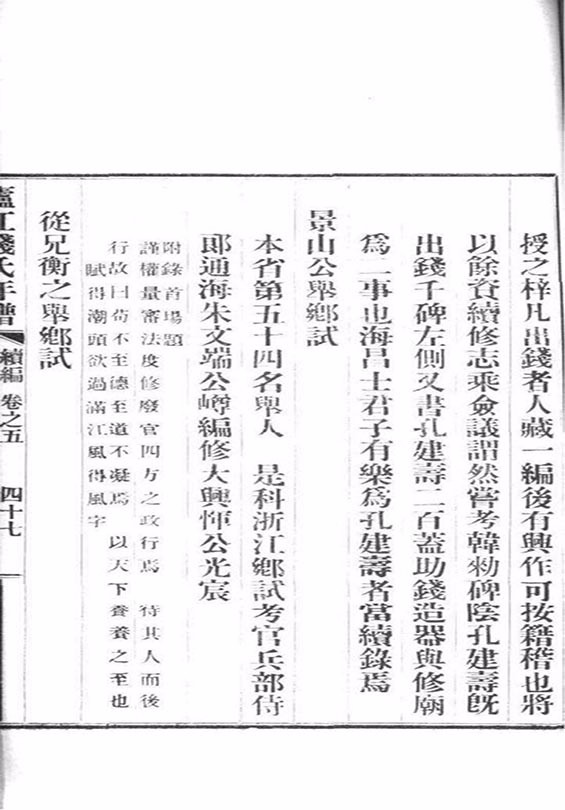 授之梓凡出錢者人藏一編後有興作可按籍稽也將
以餘資續修志乘僉議謂然嘗考韓勑碑陰孔建壽旣
出錢千碑左側又書孔建壽二百蓋助錢造器與修廟
爲二事也海昌士君子有樂爲孔建壽者當續錄焉
景山公舉鄕試
本省第五十四名舉人　是科浙江鄕試考官兵部侍
郞通海朱文端公嶟編修大興惲公光宸
附錄首場題
謹權量審法度修廢官四方之政行焉　待其人而後
行故曰苟不至德至道不凝焉　以天下養養之至也
賦得潮頭欲過滿江風得風字
從兄衡之舉鄕試
廬江錢氏年譜　續編　卷之五　四十七